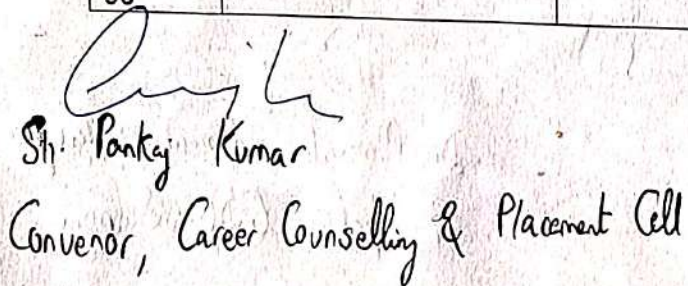 Sh. Pankaj Kumar
Convenor, Career Counselling & Placement Cell